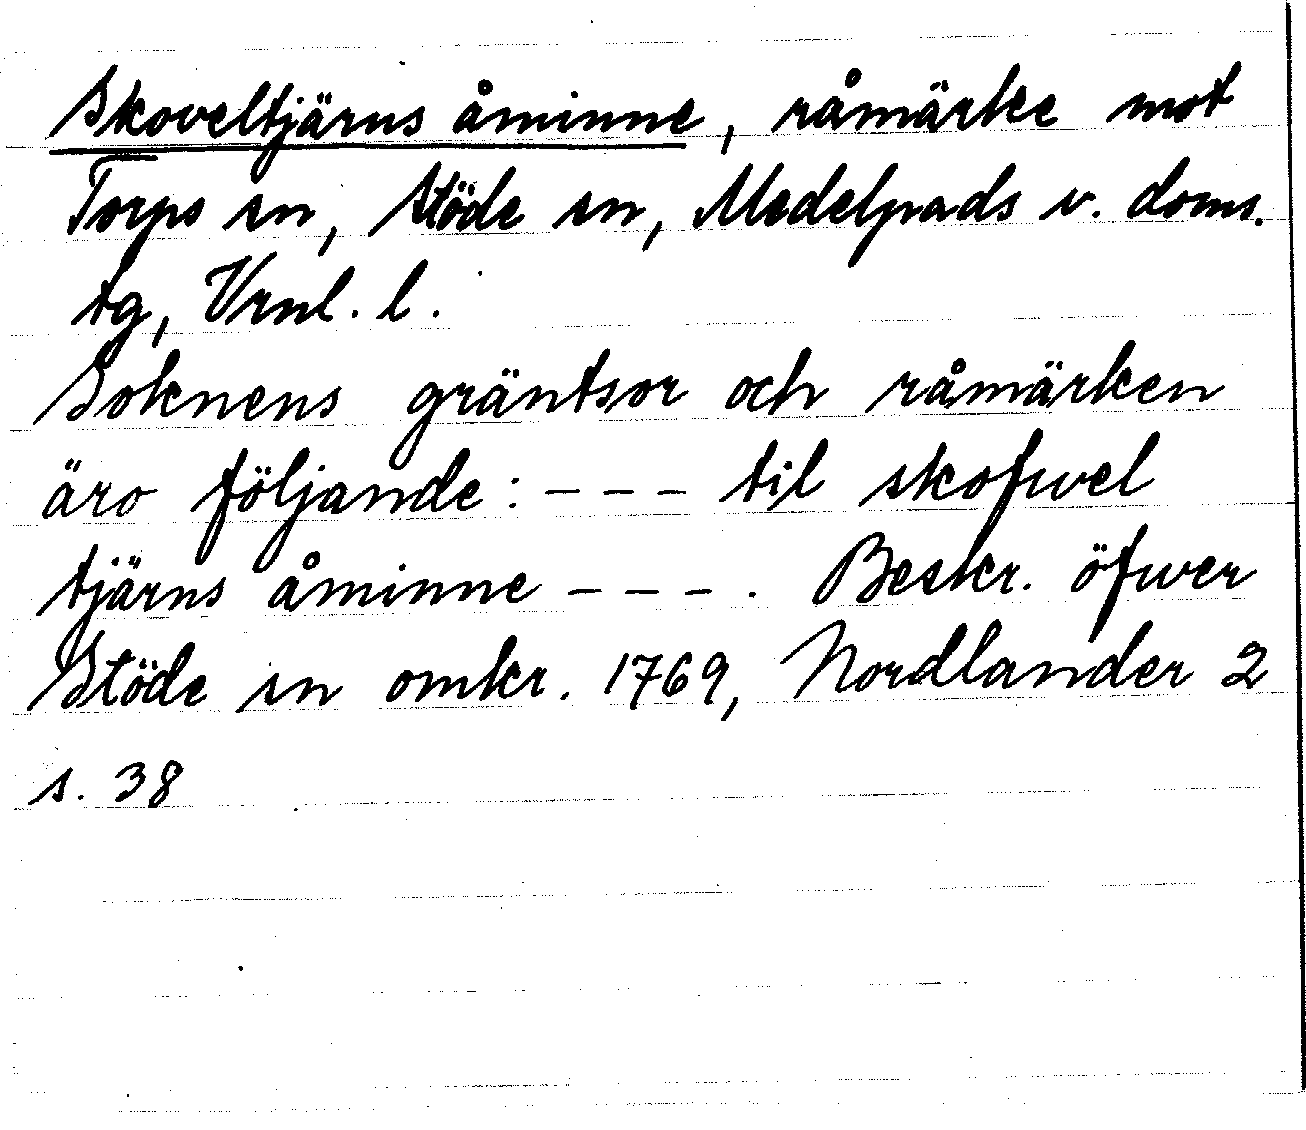 Skoveltjärns åminne, råmärke mot
Torps sn, Stöde sn, Medelpads v. doms.
tg, Vrnl. l.
Soknens gräntsor och råmärken
äro följande: – – – til skofwel
tjärns åminne – – – . Beskr. öfwer
Stöde sn omkr. 1769, Nordlander 2
s. 38